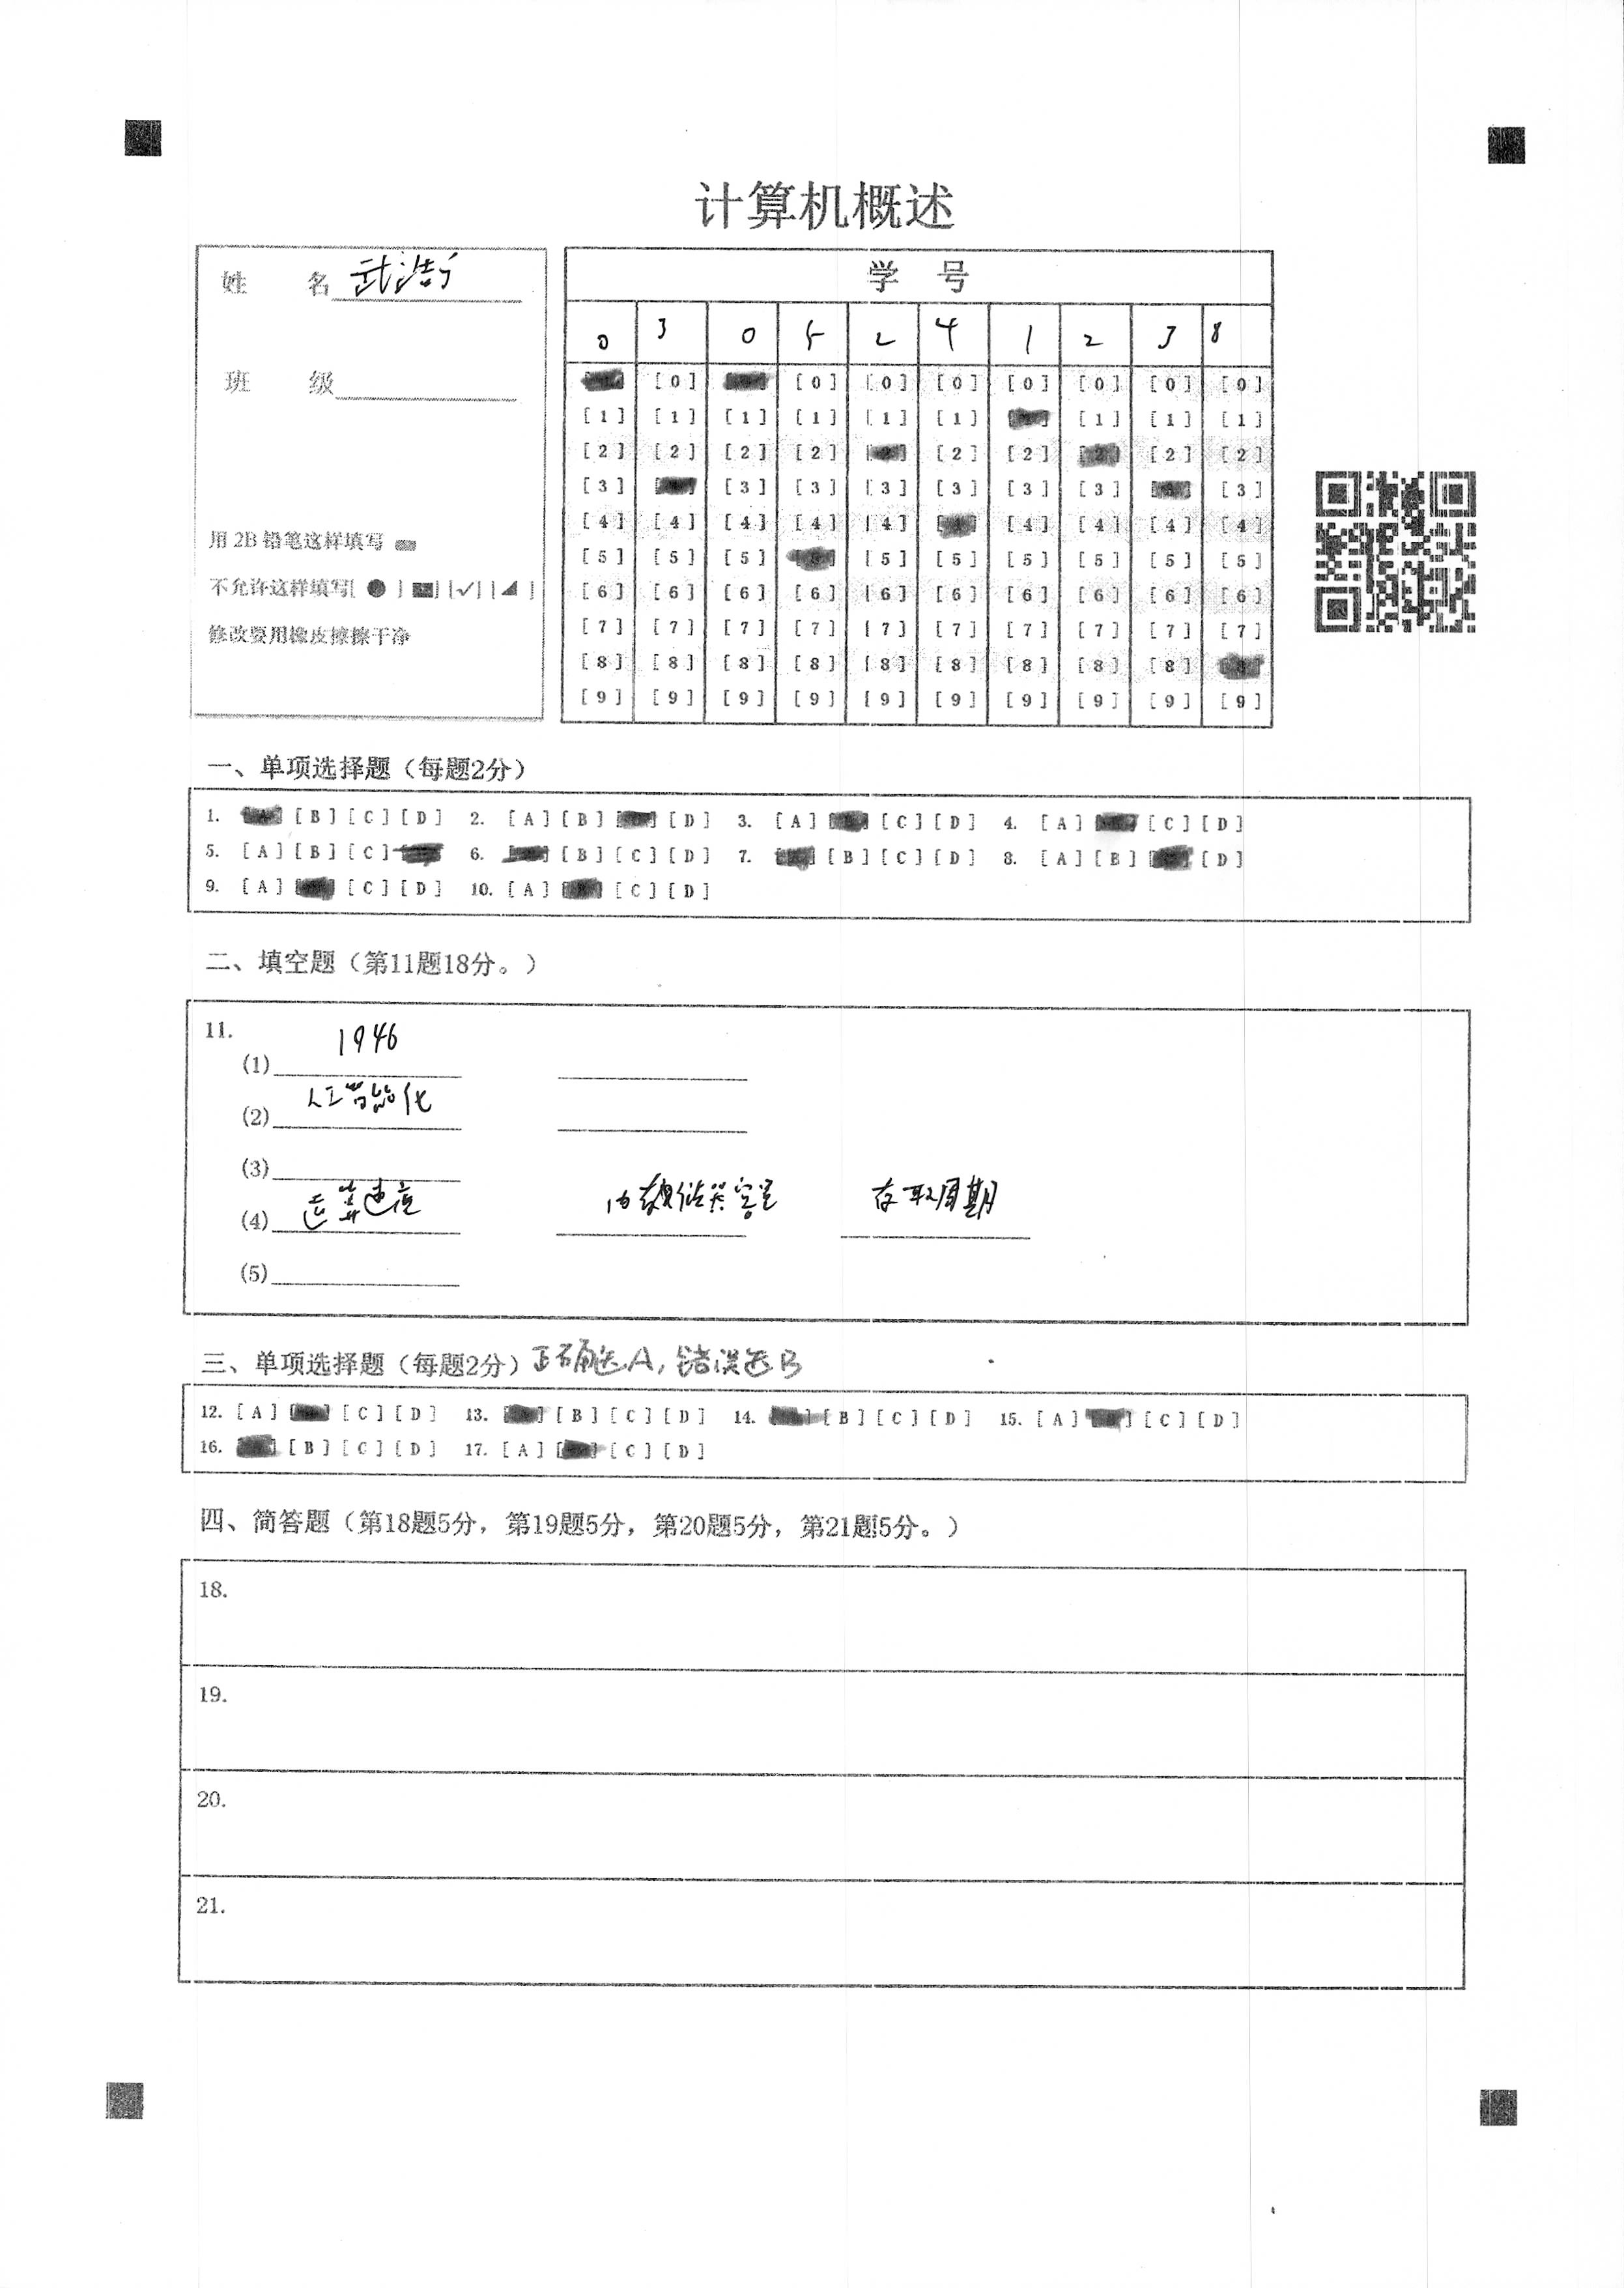 计算机概述
姓 名 武浩
班 级
用 2B 铅笔这样填写
不允许这样填写[ ● ] [ ] [✓] [◢ ]
修改要用橡皮擦擦干净
学 号
0 3 0 5 2 4 1 2 3 8
[0] [0] [0] [0] [0] [0] [0] [0]
[1] [1] [1] [1] [1] [1] [1] [1] [1]
[2] [2] [2] [2] [2] [2] [2] [2] [2]
[3] [3] [3] [3] [3] [3] [3] [3]
[4] [4] [4] [4] [4] [4] [4] [4] [4] [4]
[5] [5] [5] [5] [5] [5] [5] [5] [5]
[6] [6] [6] [6] [6] [6] [6] [6] [6] [6]
[7] [7] [7] [7] [7] [7] [7] [7] [7] [7]
[8] [8] [8] [8] [8] [8] [8] [8] [8]
[9] [9] [9] [9] [9] [9] [9] [9] [9] [9]
一、单项选择题（每题2分）
1. [A] [B] [C] [D] 2. [A] [B] [D] 3. [A] [C] [D] 4. [A] [C] [D]
5. [A] [B] [C] 6. [B] [C] [D] 7. [B] [C] [D] 8. [A] [B] [D]
9. [A] [C] [D] 10. [A] [C] [D]
二、填空题（第11题18分。）
11.
(1) 1946
(2) 人工智能化
(3)
(4) 运算速度 存取周期
(5)
三、单项选择题（每题2分）正确选A，错误选B
12. [A] [C] [D] 13. [B] [C] [D] 14. [B] [C] [D] 15. [A] [C] [D]
16. [B] [C] [D] 17. [A] [C] [D]
四、简答题（第18题5分，第19题5分，第20题5分，第21题5分。）
18.
19.
20.
21.